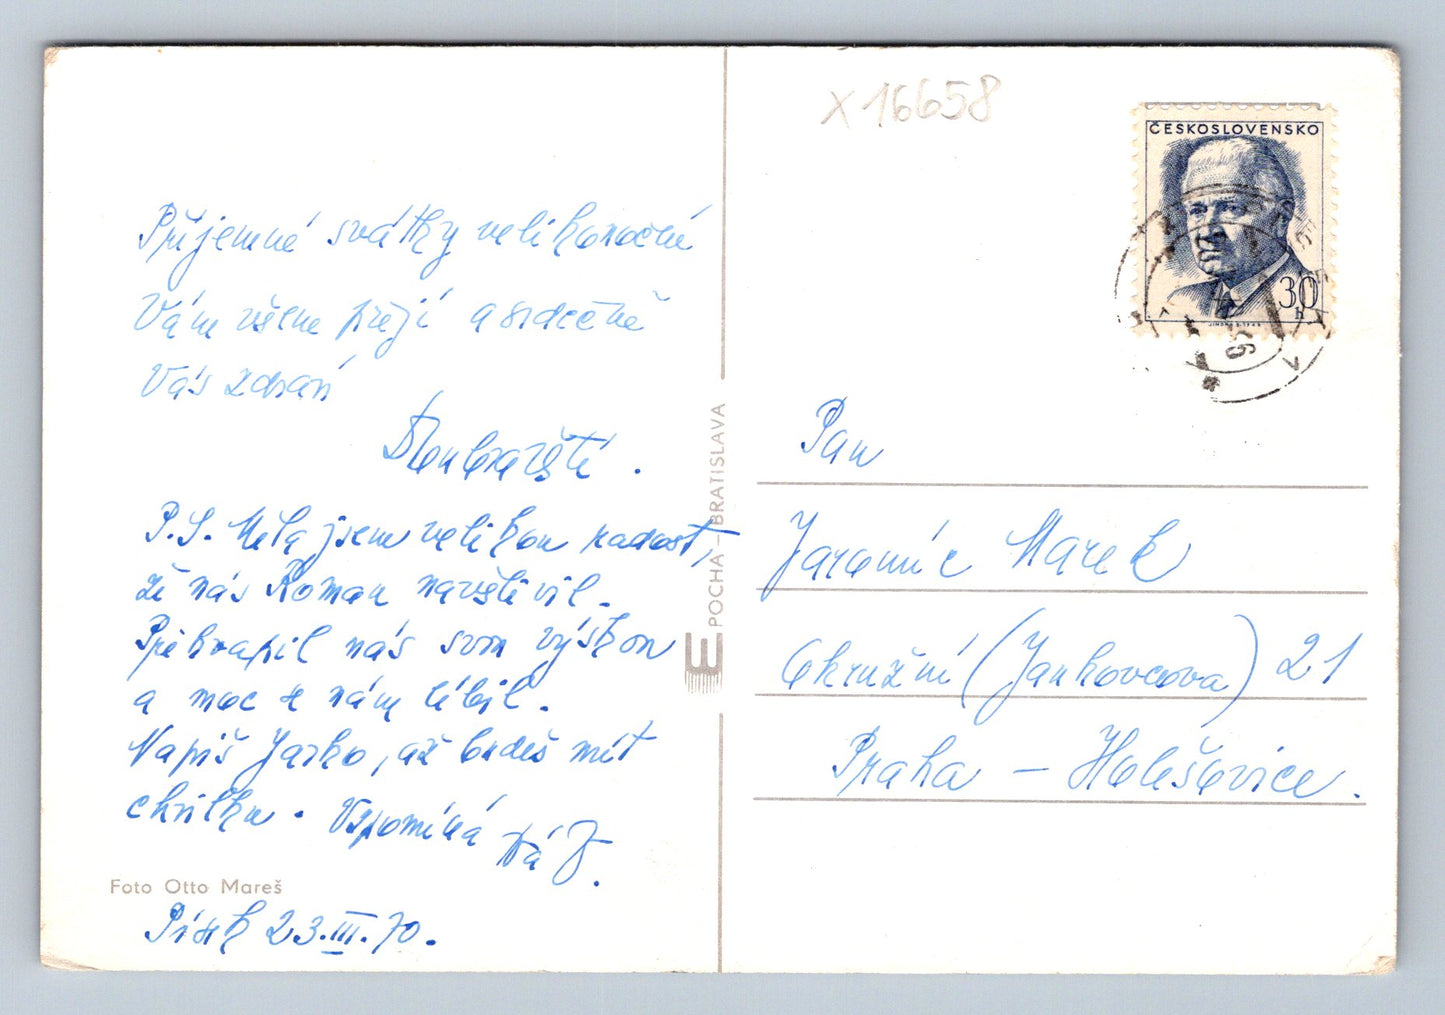 x 16658
ČESKOSLOVENSKO
30
h
Příjemné svátky velikonoční
Vám všem přejí a srdečně
Vás zdraví
Doubravští.
P.S. Měla jsem velikou radost,
že nás Roman navštívil.
Překvapil nás svou výškou
a moc se nám líbil.
Napiš Jarko, až budeš mít
chvilku. Vzpomíná
Foto Otto Mareš
Písek 23.III.70.
POCHA – BRATISLAVA
Pan
Jaromír Marek
Okružní (Jankovcova) 21
Praha – Holešovice.